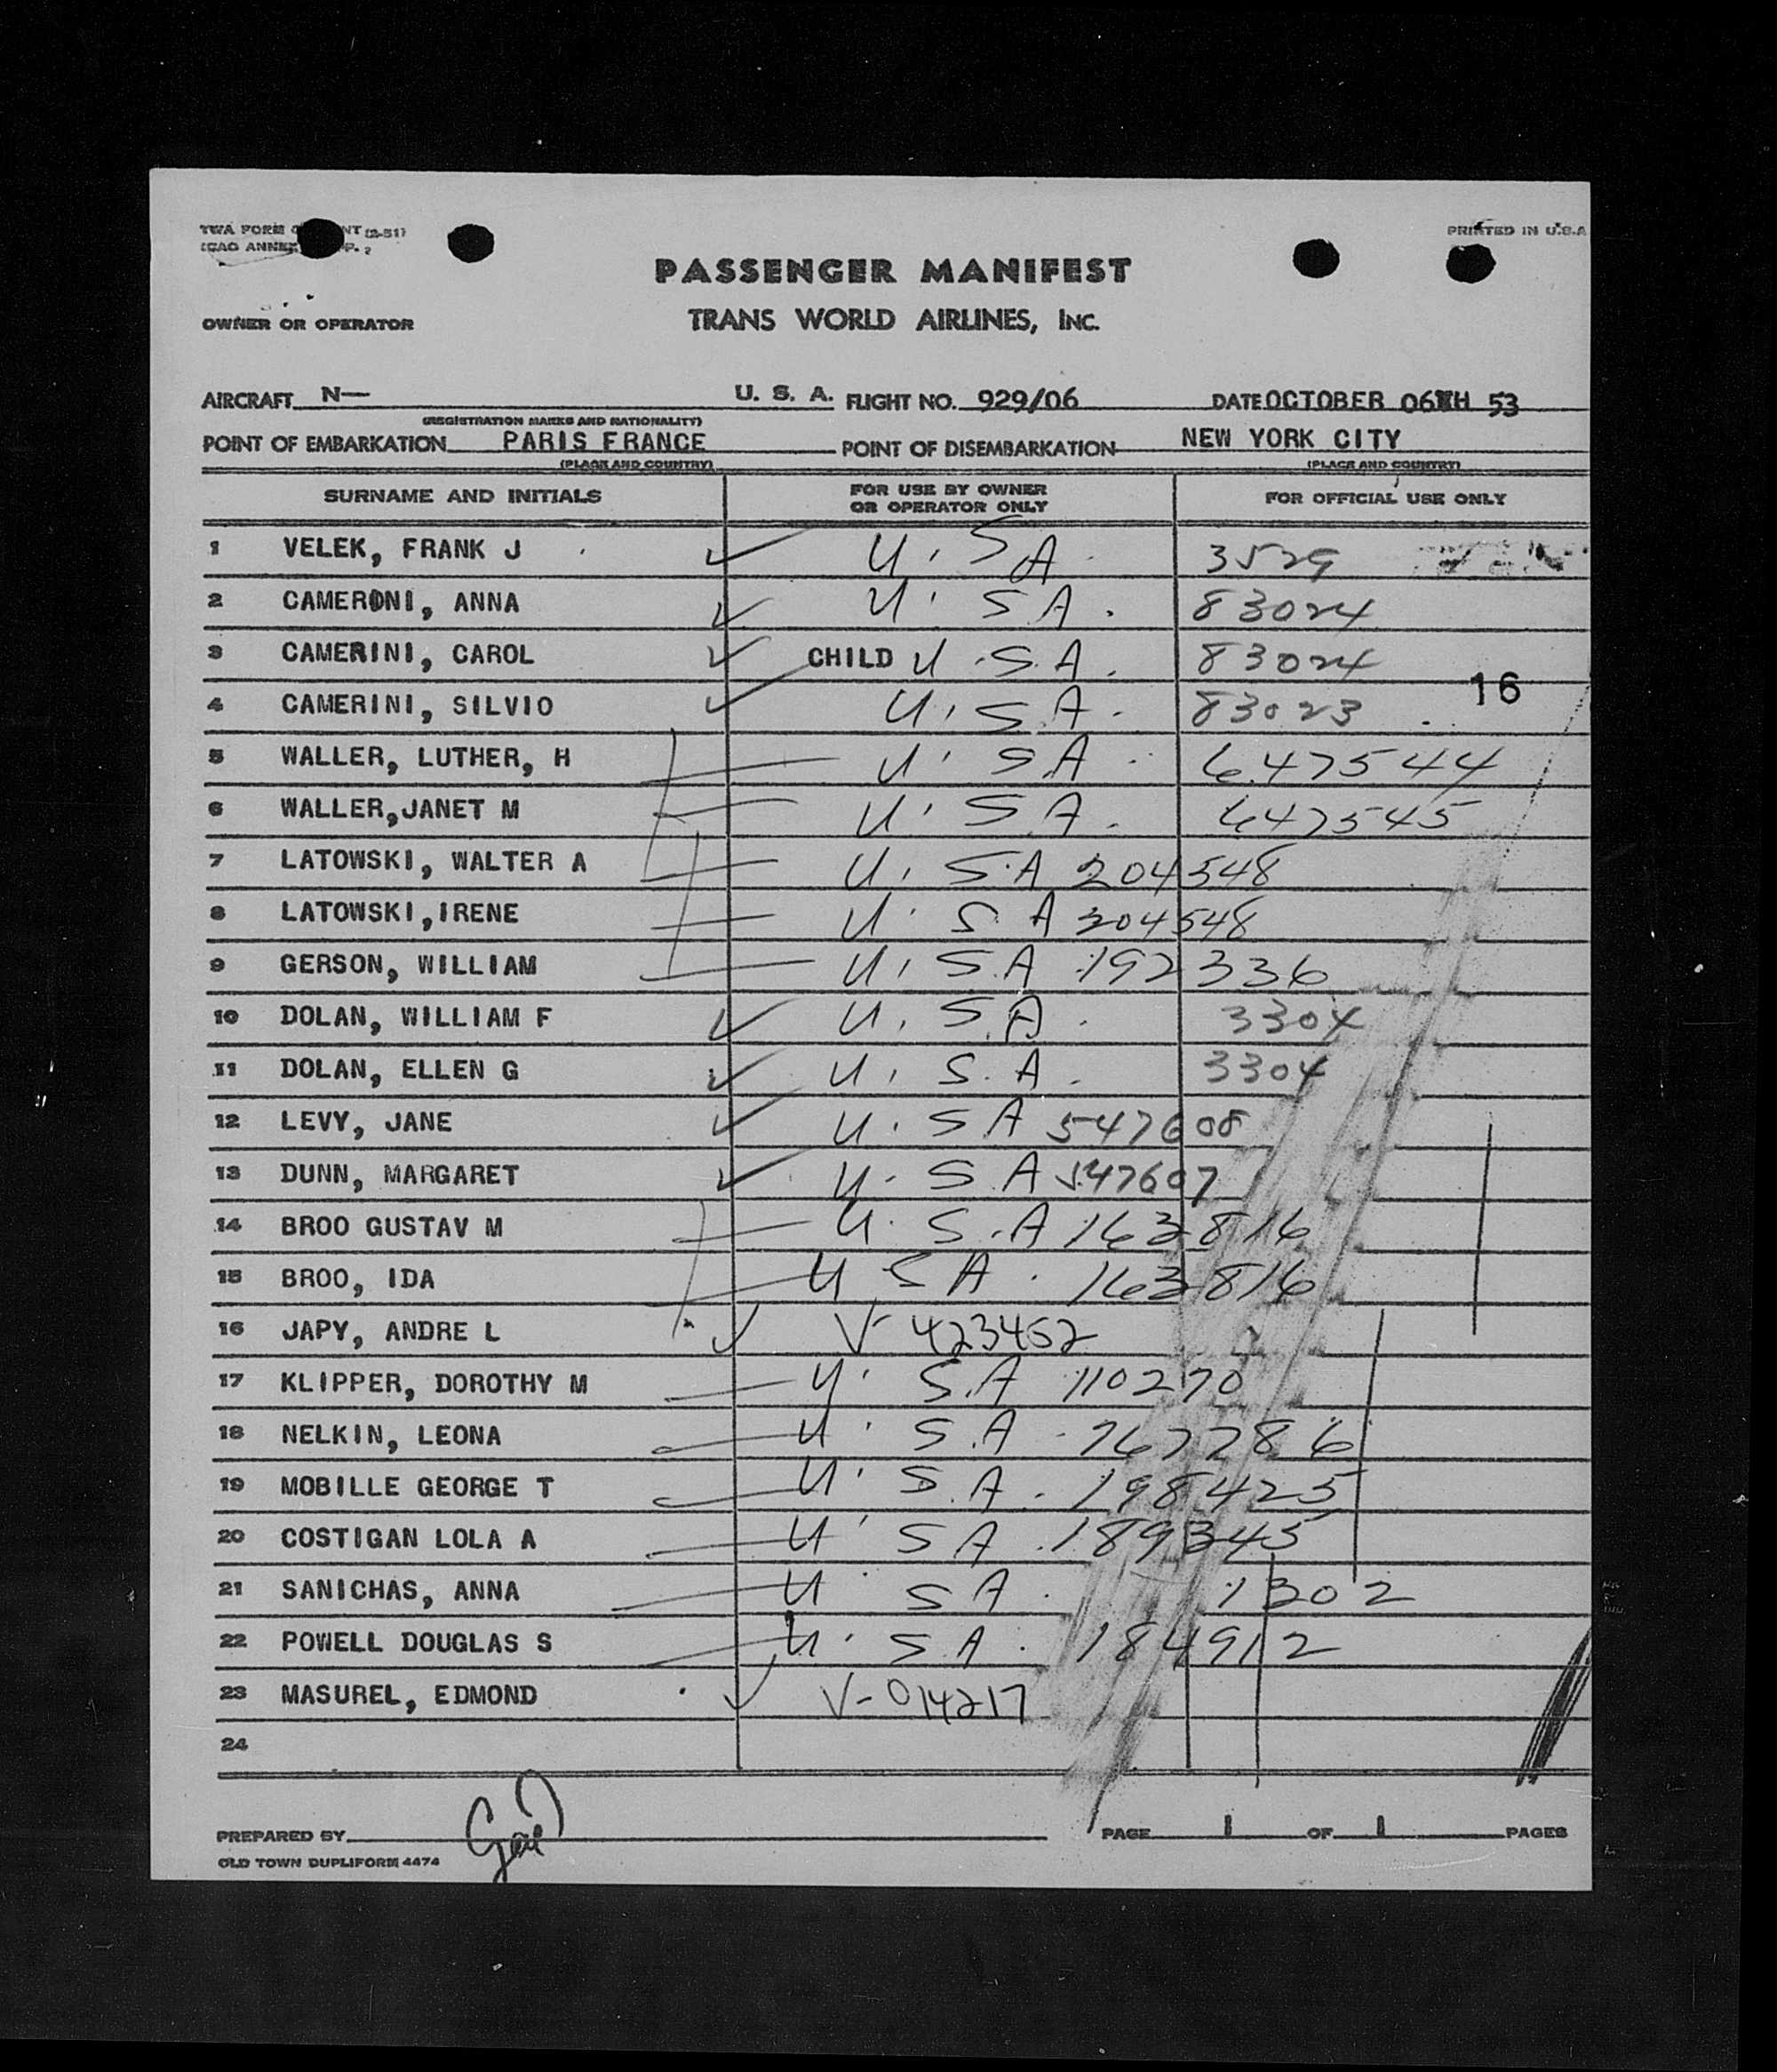 TWA FORM NT (2-51)
ICAO ANNEX P. 2
PRINTED IN U.S.A
PASSENGER MANIFEST
OWNER OR OPERATOR
TRANS WORLD AIRLINES, INC.
AIRCRAFT N— U. S. A. FLIGHT NO. 929/06 DATE OCTOBER 06TH 53
(REGISTRATION MARKS AND NATIONALITY)
POINT OF EMBARKATION PARIS FRANCE POINT OF DISEMBARKATION NEW YORK CITY
(PLACE AND COUNTRY) (PLACE AND COUNTRY)
SURNAME AND INITIALS FOR USE BY OWNER OR OPERATOR ONLY FOR OFFICIAL USE ONLY
1 VELEK, FRANK J U. S A 3529
2 CAMERONI, ANNA U. S A. 83024
3 CAMERINI, CAROL CHILD U.S.A. 83024
16
4 CAMERINI, SILVIO U.S.A. 83023
5 WALLER, LUTHER, H U. S.A 647544
6 WALLER,JANET M U. S.A. 647545
7 LATOWSKI, WALTER A U. S.A 204548
8 LATOWSKI,IRENE U. S. A 204548
9 GERSON, WILLIAM U. S.A 192336
10 DOLAN, WILLIAM F U. S.A. 3304
11 DOLAN, ELLEN G U. S. A. 3304
12 LEVY, JANE U. S A 547608
13 DUNN, MARGARET U. S A 547607
14 BROO GUSTAV M U. S.A 163816
15 BROO, IDA U S A. 163816
16 JAPY, ANDRE L V- 423452
17 KLIPPER, DOROTHY M U. S.A 110270
18 NELKIN, LEONA U. S.A
19 MOBILLE GEORGE T U. S.A. 198425
20 COSTIGAN LOLA A U. S A 189345
21 SANICHAS, ANNA U S A. 1302
22 POWELL DOUGLAS S U. S A. 184912
23 MASUREL, EDMOND V-014217
24
PREPARED BY PAGE 1 OF 1 PAGES
OLD TOWN DUPLIFORM 4474